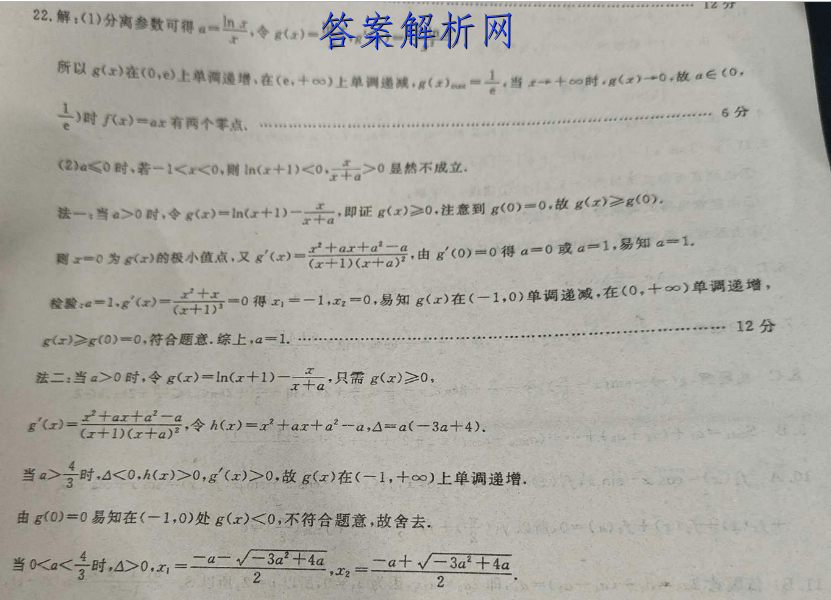 12 分
22.解:(1)分离参数可得 a=\frac{\ln x}{x},令 g(x)=
答案解析网
所以 g(x)在(0,e)上单调递增,在(e,+∞)上单调递减,g(x)_{max}=\frac{1}{e},当 x→+∞时,g(x)→0,故 a∈(0,
\frac{1}{e})时 f(x)=ax 有两个零点. …… 6 分
(2)a≤0 时,若-1<x<0,则 ln(x+1)<0,\frac{x}{x+a}>0 显然不成立.
法一:当 a>0 时,令 g(x)=ln(x+1)-\frac{x}{x+a},即证 g(x)≥0,注意到 g(0)=0,故 g(x)≥g(0).
则 x=0 为 g(x)的极小值点,又 g′(x)=\frac{x²+ax+a²-a}{(x+1)(x+a)²},由 g′(0)=0 得 a=0 或 a=1,易知 a=1.
检验:a=1,g′(x)=\frac{x²+x}{(x+1)³}=0 得 x₁=-1,x₂=0,易知 g(x)在(-1,0)单调递减,在(0,+∞)单调递增,
g(x)≥g(0)=0,符合题意.综上,a=1. …… 12 分
法二:当 a>0 时,令 g(x)=ln(x+1)-\frac{x}{x+a},只需 g(x)≥0,
g′(x)=\frac{x²+ax+a²-a}{(x+1)(x+a)²},令 h(x)=x²+ax+a²-a,Δ=a(-3a+4).
当 a>\frac{4}{3}时,Δ<0,h(x)>0,g′(x)>0,故 g(x)在(-1,+∞)上单调递增.
由 g(0)=0 易知在(-1,0)处 g(x)<0,不符合题意,故舍去.
当 0<a<\frac{4}{3}时,Δ>0,x₁=\frac{-a-\sqrt{-3a²+4a}}{2},x₂=\frac{-a+\sqrt{-3a²+4a}}{2}.